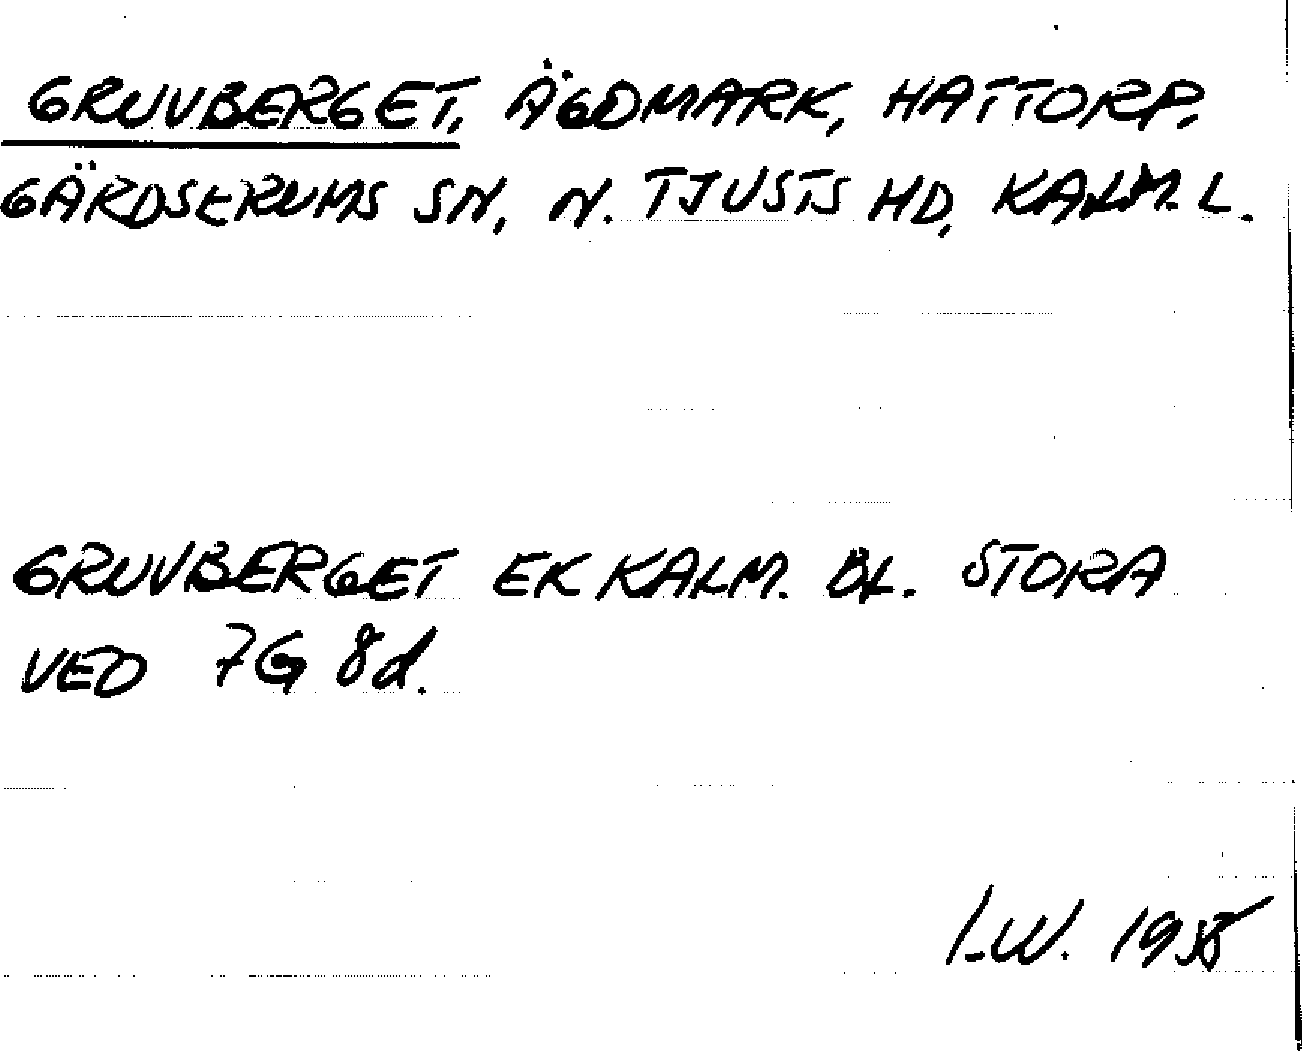 GRUVBERGET, ÄGOMARK, HATTORP,
GÄRDSERUMS SN, N. TJUSTS HD, KALM. L.
GRUVBERGET EK KALM. BL. STORA
VED 7G 8d.
I.W.